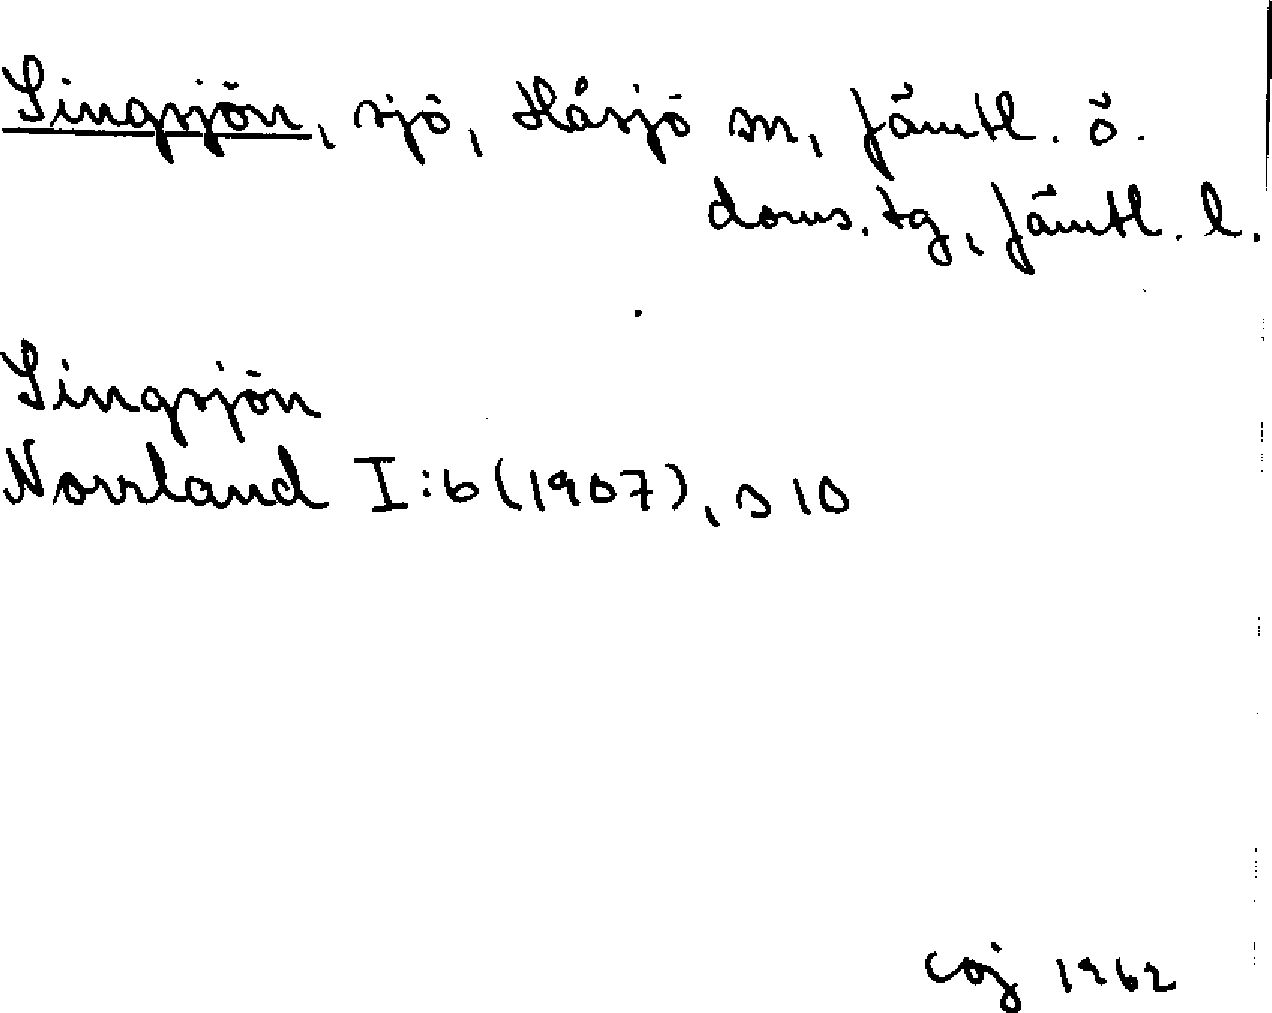 Singsjön, sjö, Håsjö sn, Jämtl. ö.
doms. tg, Jämtl. l.
Singsjön
Norrland I:6 (1907), s 10
Coj 1962